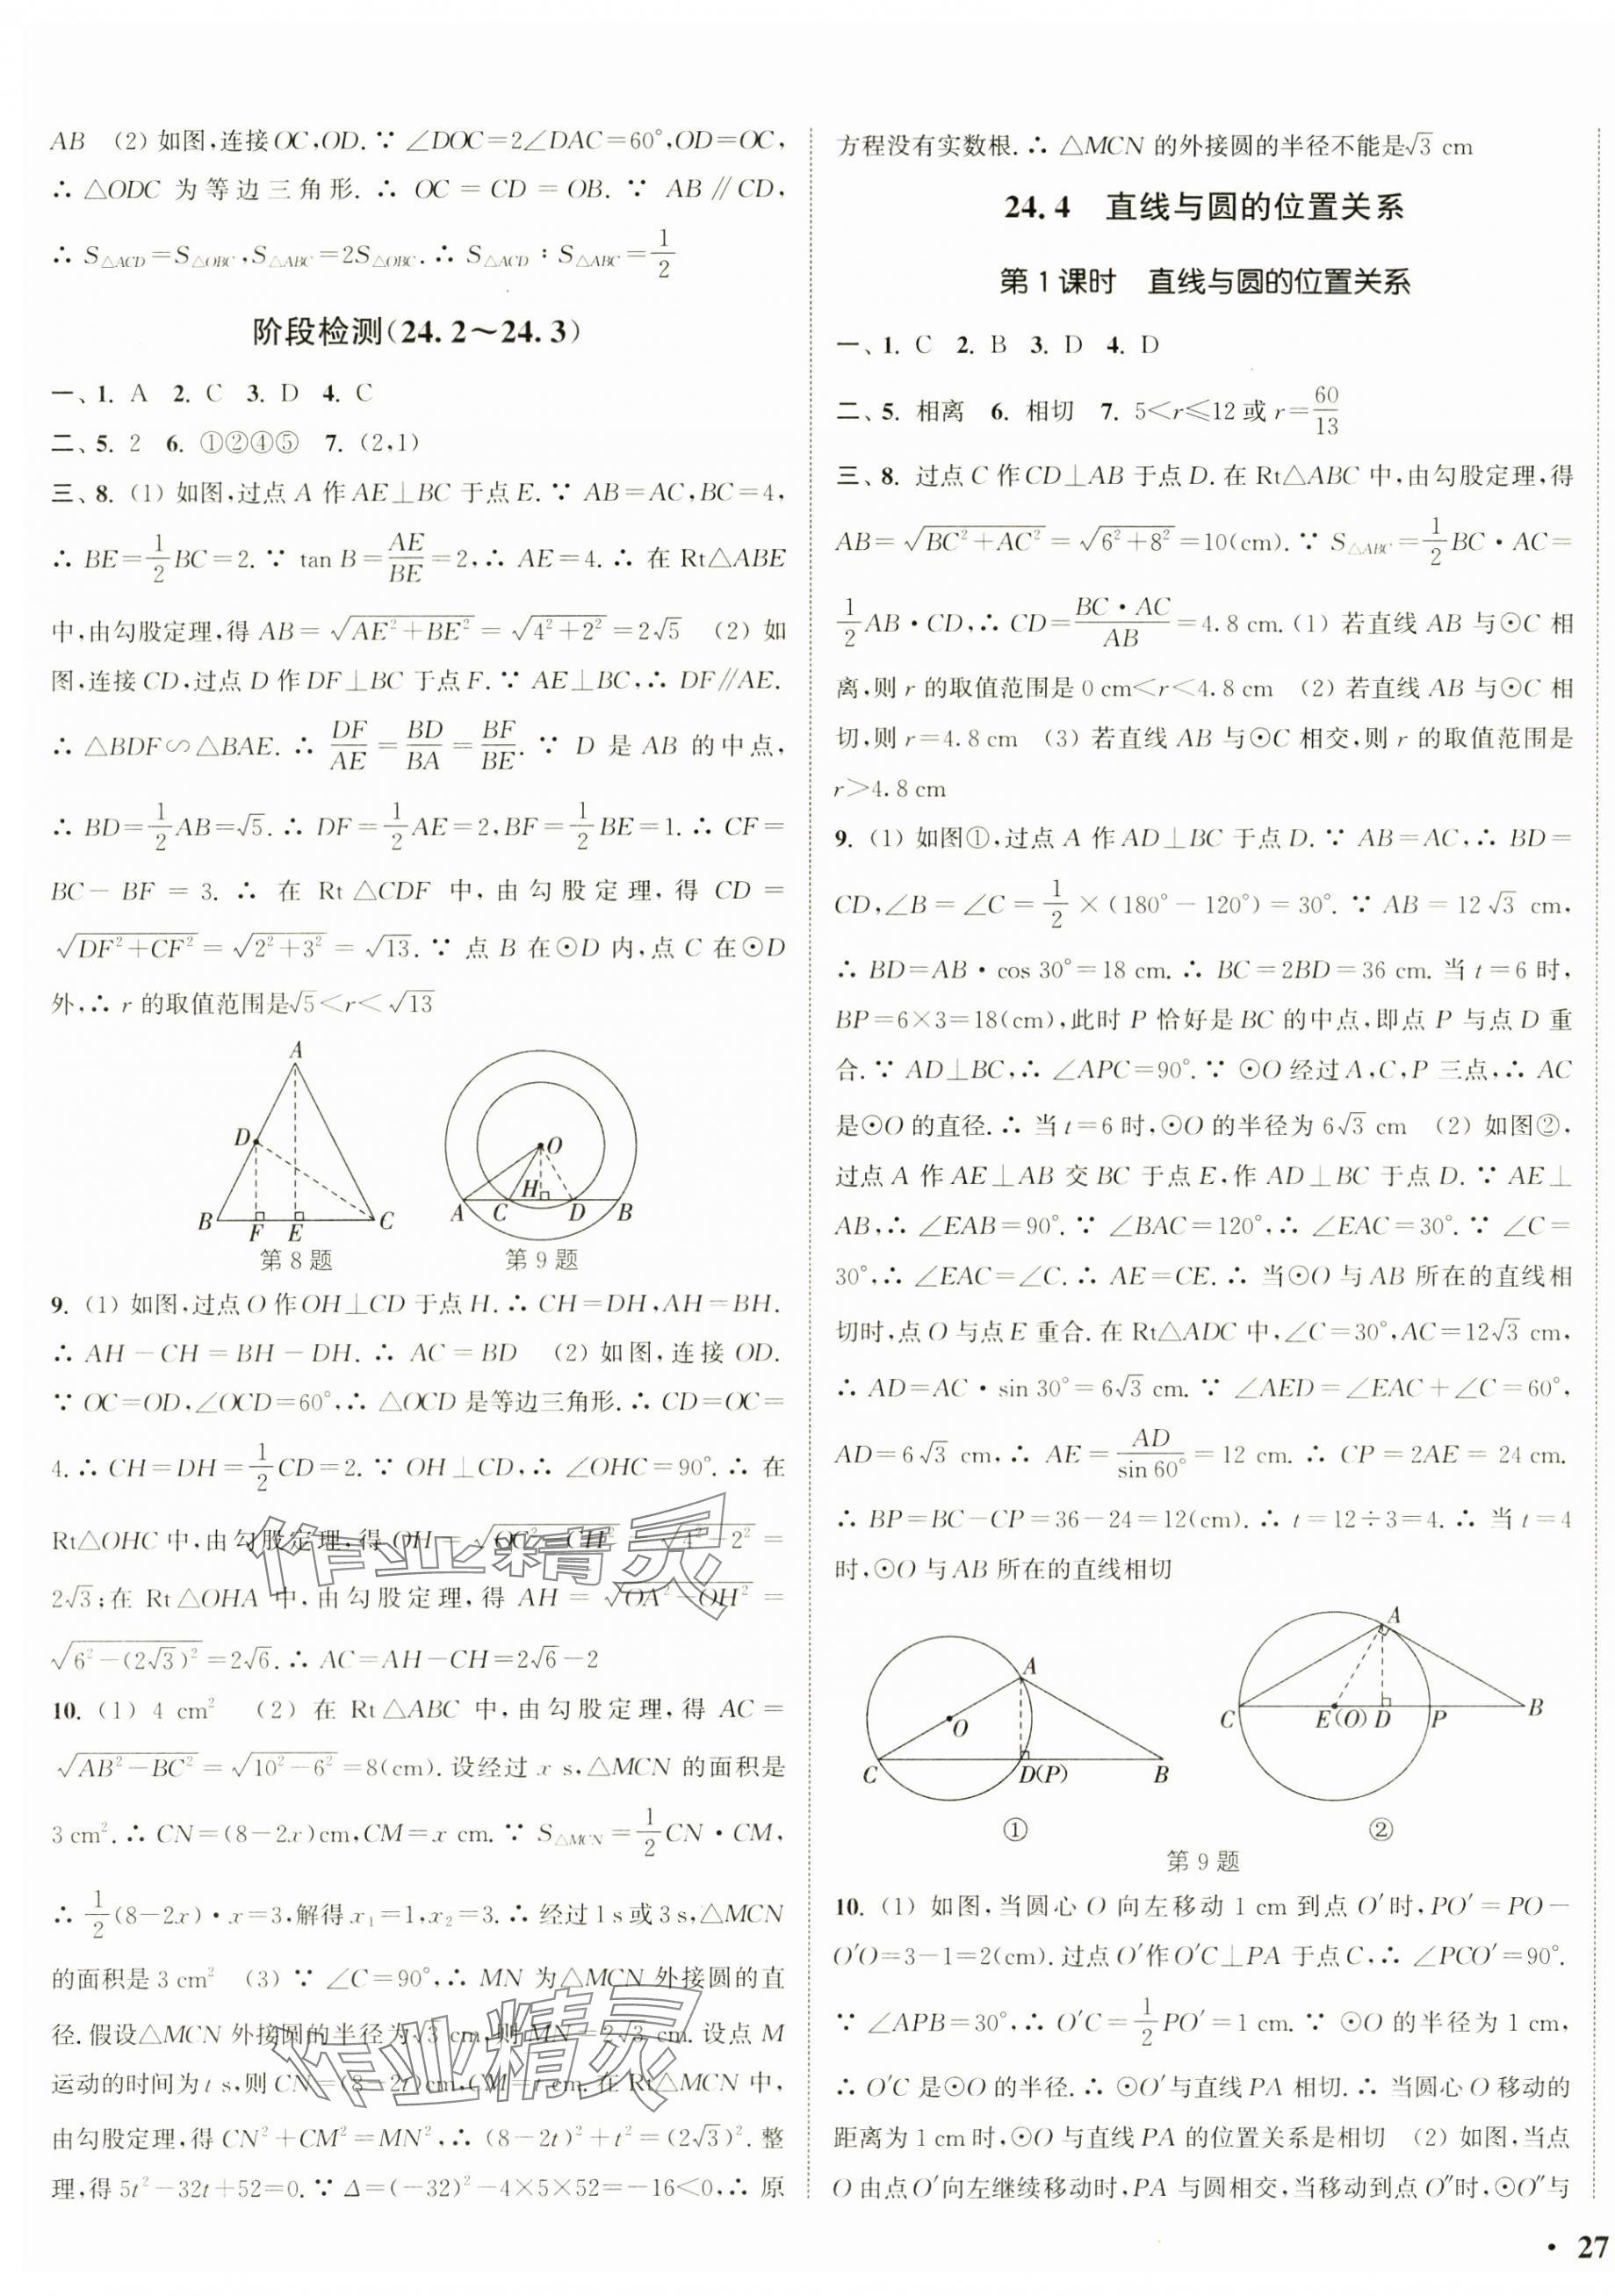 AB (2) 如图,连接OC,OD.∵ ∠DOC=2∠DAC=60°,OD=OC,
∴ △ODC 为等边三角形.∴ OC=CD=OB.∵ AB∥CD,
∴ S△ACD=S△OBC,S△ABC=2S△OBC.∴ S△ACD∶S△ABC=1/2
阶段检测(24.2～24.3)
一、1. A 2. C 3. D 4. C
二、5. 2 6. ①②④⑤ 7. (2,1)
三、8. (1) 如图,过点A作AE⊥BC于点E.∵ AB=AC,BC=4,
∴ BE=1/2BC=2.∵ tan B=AE/BE=2,∴ AE=4.∴ 在Rt△ABE
中,由勾股定理,得AB=√(AE²+BE²)=√(4²+2²)=2√5 (2) 如
图,连接CD,过点D作DF⊥BC于点F.∵ AE⊥BC,∴ DF∥AE.
∴ △BDF∽△BAE.∴ DF/AE=BD/BA=BF/BE.∵ D是AB的中点,
∴ BD=1/2AB=√5.∴ DF=1/2AE=2,BF=1/2BE=1.∴ CF=
BC-BF=3.∴ 在Rt△CDF中,由勾股定理,得CD=
√(DF²+CF²)=√(2²+3²)=√13.∵ 点B在⊙D内,点C在⊙D
外,∴ r的取值范围是√5<r<√13
A
D
B F E C
第8题
O
H
A C D B
第9题
9. (1) 如图,过点O作OH⊥CD于点H.∴ CH=DH,AH=BH.
∴ AH-CH=BH-DH.∴ AC=BD (2) 如图,连接OD.
∵ OC=OD,∠OCD=60°,∴ △OCD是等边三角形.∴ CD=OC=
4.∴ CH=DH=1/2CD=2.∵ OH⊥CD,∴ ∠OHC=90°.∴ 在
Rt△OHC中,由勾股定理,得OH=√(OC²-CH²)=√(4²-2²)=
2√3;在Rt△OHA中,由勾股定理,得AH=√(OA²-OH²)=
√(6²-(2√3)²)=2√6.∴ AC=AH-CH=2√6-2
10. (1) 4 cm² (2) 在Rt△ABC中,由勾股定理,得AC=
√(AB²-BC²)=√(10²-6²)=8(cm).设经过x s,△MCN的面积是
3 cm².∴ CN=(8-2x)cm,CM=x cm.∵ S△MCN=1/2CN·CM,
∴ 1/2(8-2x)·x=3,解得x₁=1,x₂=3.∴ 经过1 s或3 s,△MCN
的面积是3 cm² (3) ∵ ∠C=90°,∴ MN为△MCN外接圆的直
径.假设△MCN外接圆的半径为√3 cm,则MN=2√3 cm.设点M
运动的时间为t s,则CN=(8-2t)cm,CM=t cm.在Rt△MCN中,
由勾股定理,得CN²+CM²=MN²,∴ (8-2t)²+t²=(2√3)².整
理,得5t²-32t+52=0.∵ Δ=(-32)²-4×5×52=-16<0,∴ 原
作业精灵
作业精灵
方程没有实数根.∴ △MCN的外接圆的半径不能是√3 cm
24.4 直线与圆的位置关系
第1课时 直线与圆的位置关系
一、1. C 2. B 3. D 4. D
二、5. 相离 6. 相切 7. 5<r≤12或r=60/13
三、8. 过点C作CD⊥AB于点D.在Rt△ABC中,由勾股定理,得
AB=√(BC²+AC²)=√(6²+8²)=10(cm).∵ S△ABC=1/2BC·AC=
1/2AB·CD,∴ CD=BC·AC/AB=4.8 cm.(1) 若直线AB与⊙C相
离,则r的取值范围是0 cm<r<4.8 cm (2) 若直线AB与⊙C相
切,则r=4.8 cm (3) 若直线AB与⊙C相交,则r的取值范围是
r>4.8 cm
9. (1) 如图①,过点A作AD⊥BC于点D.∵ AB=AC,∴ BD=
CD,∠B=∠C=1/2×(180°-120°)=30°.∵ AB=12√3 cm,
∴ BD=AB·cos 30°=18 cm.∴ BC=2BD=36 cm.当t=6时,
BP=6×3=18(cm),此时P恰好是BC的中点,即点P与点D重
合.∵ AD⊥BC,∴ ∠APC=90°.∵ ⊙O经过A,C,P三点,∴ AC
是⊙O的直径.∴ 当t=6时,⊙O的半径为6√3 cm (2) 如图②,
过点A作AE⊥AB交BC于点E,作AD⊥BC于点D.∵ AE⊥
AB,∴ ∠EAB=90°.∵ ∠BAC=120°,∴ ∠EAC=30°.∵ ∠C=
30°,∴ ∠EAC=∠C.∴ AE=CE.∴ 当⊙O与AB所在的直线相
切时,点O与点E重合.在Rt△ADC中,∠C=30°,AC=12√3 cm,
∴ AD=AC·sin 30°=6√3 cm.∵ ∠AED=∠EAC+∠C=60°,
AD=6√3 cm,∴ AE=AD/sin 60°=12 cm.∴ CP=2AE=24 cm.
∴ BP=BC-CP=36-24=12(cm).∴ t=12÷3=4.∴ 当t=4
时,⊙O与AB所在的直线相切
A
O
C D(P) B
①
A
C E(O) D P B
②
第9题
10. (1) 如图,当圆心O向左移动1 cm到点O′时,PO′=PO-
O′O=3-1=2(cm).过点O′作O′C⊥PA于点C,∴ ∠PCO′=90°.
∵ ∠APB=30°,∴ O′C=1/2PO′=1 cm.∵ ⊙O的半径为1 cm,
∴ O′C是⊙O的半径.∴ ⊙O′与直线PA相切.∴ 当圆心O移动的
距离为1 cm时,⊙O与直线PA的位置关系是相切 (2) 如图,当点
O由点O′向左继续移动时,PA与圆相交,当移动到点O″时,⊙O″与
· 27